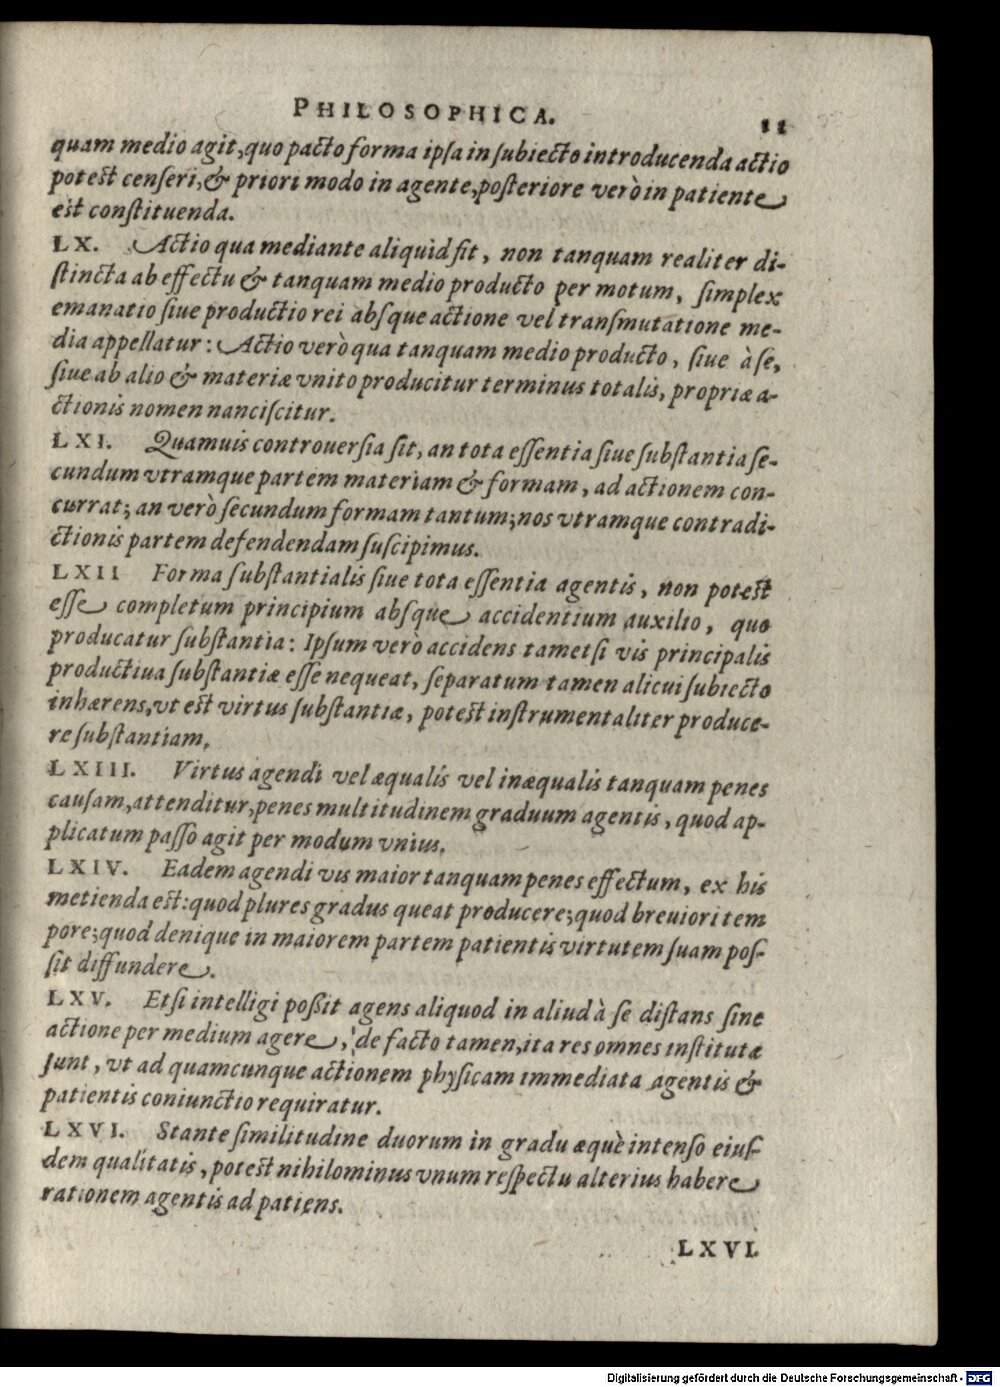 PHILOSOPHICA. 11
quam medio agit, quo pacto forma ipſa in ſubiecto introducenda actio
poteſt cenſeri, & priori modo in agente, poſteriore verò in patiente
eſt conſtituenda.
LX. Actio qua mediante aliquid fit, non tanquam realiter di-
ſtincta ab effectu & tanquam medio producto per motum, ſimplex
emanatio ſiue productio rei abſque actione vel tranſmutatione me-
dia appellatur: Actio verò qua tanquam medio producto, ſiue à ſe,
ſiue ab alio & materiæ vnito producitur terminus totalis, propriæ a-
ctionis nomen nanciſcitur.
LXI. Quamuis controuerſia ſit, an tota eſſentia ſiue ſubſtantia ſe-
cundum vtramque partem materiam & formam, ad actionem con-
currat; an verò ſecundum formam tantum; nos vtramque contradi-
ctionis partem defendendam ſuſcipimus.
LXII Forma ſubſtantialis ſiue tota eſſentia agentis, non poteſt
eſſe completum principium abſque accidentium auxilio, quo
producatur ſubſtantia: Ipſum verò accidens tametſi vis principalis
productiua ſubſtantiæ eſſe nequeat, ſeparatum tamen alicui ſubiecto
inhærens, vt eſt virtus ſubſtantiæ, poteſt inſtrumentaliter produce-
re ſubſtantiam.
LXIII. Virtus agendi vel æqualis vel inæqualis tanquam penes
cauſam, attenditur, penes multitudinem graduum agentis, quod ap-
plicatum paſſo agit per modum vnius.
LXIV. Eadem agendi vis maior tanquam penes effectum, ex his
metienda eſt: quod plures gradus queat producere; quod breuiori tem
pore; quod denique in maiorem partem patientis virtutem ſuam poſ-
ſit diffundere.
LXV. Etſi intelligi poßit agens aliquod in aliud à ſe diſtans ſine
actione per medium agere, de facto tamen, ita res omnes inſtitutæ
ſunt, vt ad quamcunque actionem phyſicam immediata agentis &
patientis coniunctio requiratur.
LXVI. Stante ſimilitudine duorum in gradu æquè intenſo eiuſ-
dem qualitatis, poteſt nihilominus vnum reſpectu alterius habere
rationem agentis ad patiens.
LXVI.
Digitalisierung gefördert durch die Deutsche Forschungsgemeinschaft - DFG